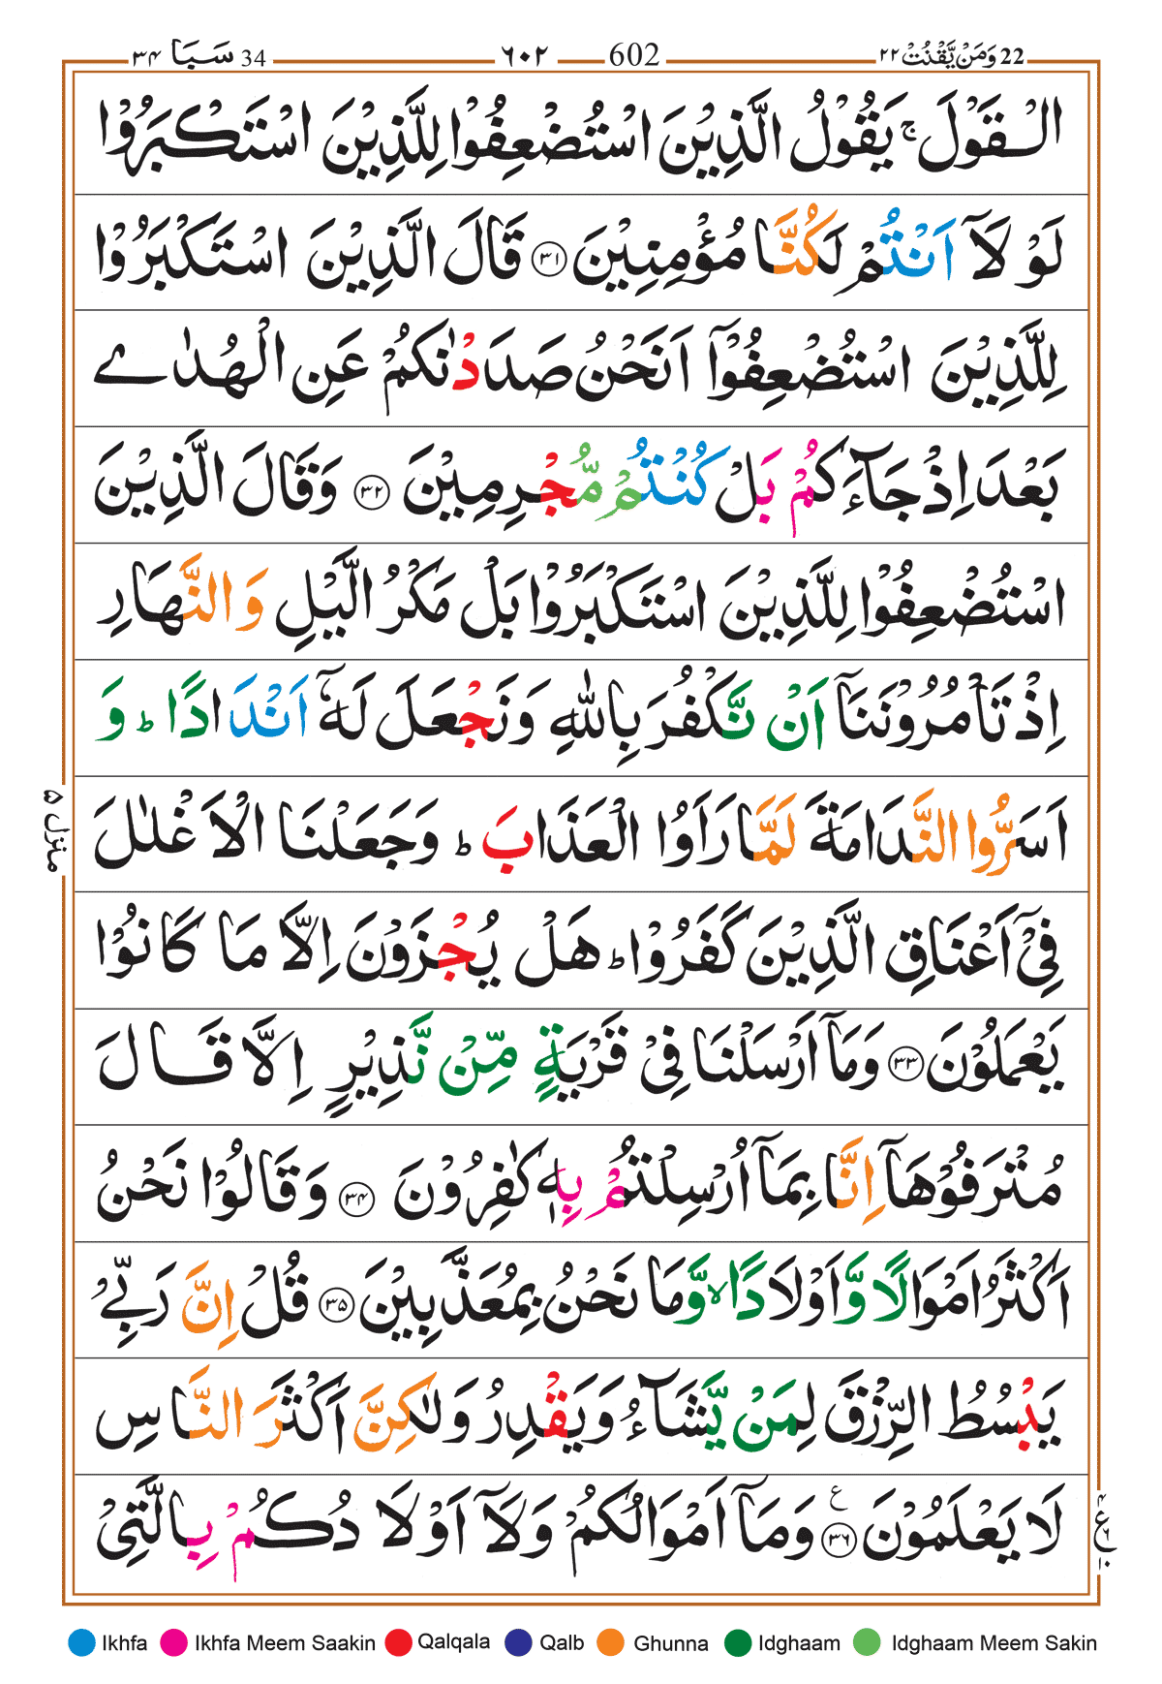 34 سَبَا ۳۴ ۶۰۲ 602 وَمَنْ يَّقْنُتْ ۲۲ 22
الْقَوْلَ ۚ يَقُوْلُ الَّذِيْنَ اسْتُضْعِفُوْا لِلَّذِيْنَ اسْتَكْبَرُوْا
لَوْ لَاۤ اَنْتُمْ لَكُنَّا مُؤْمِنِيْنَ ۳۱ قَالَ الَّذِيْنَ اسْتَكْبَرُوْا
لِلَّذِيْنَ اسْتُضْعِفُوْۤا اَنَحْنُ صَدَدْنٰكُمْ عَنِ الْهُدٰے
بَعْدَ اِذْ جَآءَكُمْ بَلْ كُنْتُمْ مُّجْرِمِيْنَ ۳۲ وَقَالَ الَّذِيْنَ
اسْتُضْعِفُوْا لِلَّذِيْنَ اسْتَكْبَرُوْا بَلْ مَكْرُ الَّيْلِ وَالنَّهَارِ
اِذْ تَاْمُرُوْنَنَاۤ اَنْ نَّكْفُرَ بِاللّٰهِ وَنَجْعَلَ لَهٗۤ اَنْدَادًا ؕ وَ
اَسَرُّوا النَّدَامَةَ لَمَّا رَاَوُا الْعَذَابَ ؕ وَجَعَلْنَا الْاَغْلٰلَ
فِيْۤ اَعْنَاقِ الَّذِيْنَ كَفَرُوْا ؕ هَلْ يُجْزَوْنَ اِلَّا مَا كَانُوْا
يَعْمَلُوْنَ ۳۳ وَمَاۤ اَرْسَلْنَا فِيْ قَرْيَةٍ مِّنْ نَّذِيْرٍ اِلَّا قَالَ
مُتْرَفُوْهَاۤ اِنَّا بِمَاۤ اُرْسِلْتُمْ بِهٖ كٰفِرُوْنَ ۳۴ وَقَالُوْا نَحْنُ
اَكْثَرُ اَمْوَالًا وَّاَوْلَادًا ۙ وَّمَا نَحْنُ بِمُعَذَّبِيْنَ ۳۵ قُلْ اِنَّ رَبِّے
يَبْسُطُ الرِّزْقَ لِمَنْ يَّشَآءُ وَيَقْدِرُ وَلٰكِنَّ اَكْثَرَ النَّاسِ
لَا يَعْلَمُوْنَ ۳۶ ع وَمَاۤ اَمْوَالُكُمْ وَلَاۤ اَوْلَادُكُمْ بِالَّتِيْ
منزل ۵
Ikhfa Ikhfa Meem Saakin Qalqala Qalb Ghunna Idghaam Idghaam Meem Sakin